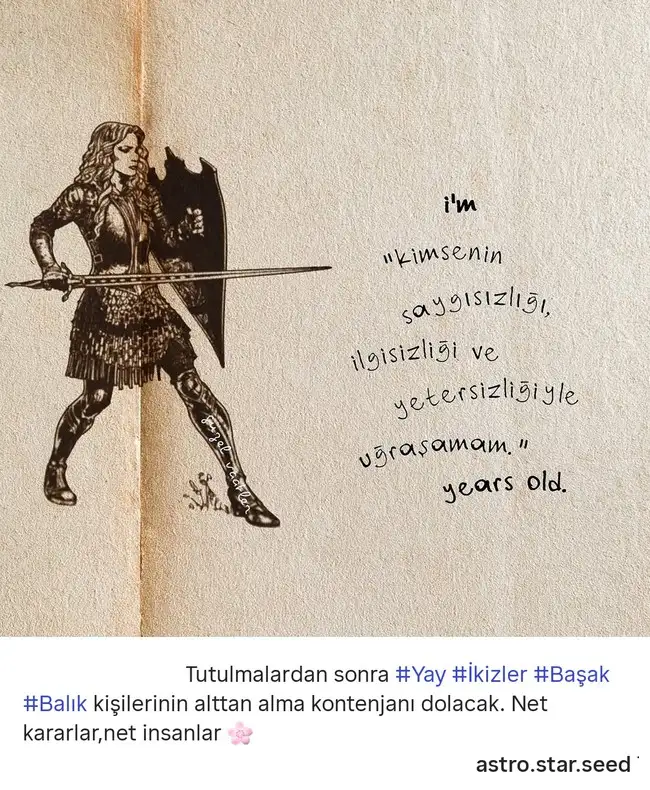 i'm
"kimsenin
saygısızlığı,
ilgisizliği ve
yetersizliğiyle
uğraşamam."
years old.
güzel vuruşlar
Tutulmalardan sonra #Yay #İkizler #Başak
#Balık kişilerinin alttan alma kontenjanı dolacak. Net
kararlar,net insanlar 🌸
astro.star.seed